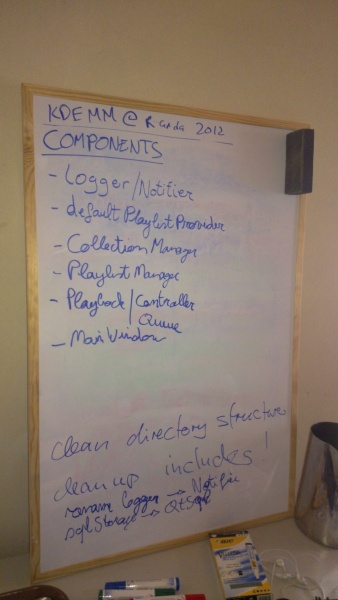 KDEMM @ Randa 2012
COMPONENTS
- Logger/Notifier
- default Playlist Provider
- Collection Manager
- Playlist Manager
- Playback/Controller
Queue
- Main Window
clean directory structure
clean up includes!
rename logger → Notifier
sqlStorage → QtSql